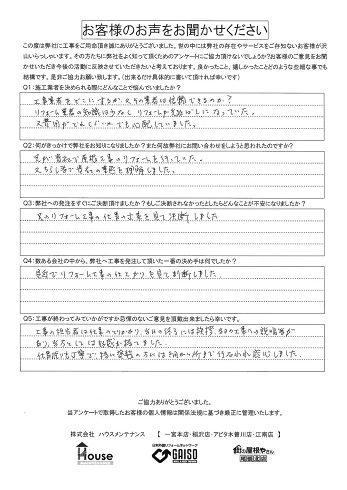 お客様のお声をお聞かせください
この度は弊社に工事をご用命頂き誠にありがとうございました。世の中には弊社の存在やサービスをご存知ないお客様が沢
山いらっしゃいます。その方たちに弊社をよく知って頂くためのアンケートにご協力頂けないでしょうか?お客様のご意見をお聞
かせいただき今後の活動に反映させていただきたいと考えております。良かったこと、嬉しかったことどのような些細な事でも
結構です。是非ご協力お願い致します。(出来るだけ具体的に書いて頂ければ幸いです)
Q1:施工業者を決められる際にどんなことで悩んでいましたか?
工事業者をどこにするか、又その業者は信頼できるのか?
リフォーム業者の知識は少なく
又費用がどれくらいかでも心配していました。
Q2:何がきっかけで弊社をお知りになりましたか?また何故弊社にお問い合わせをしようと思われたのですか?
兄が貴社で屋根工事のリフォームを行っていた。
又ちらし等で貴社の業態を
Q3:弊社への発注をすぐにご決断頂けましたか?もしご決断されなかったとしたらどんなことが不安になりましたか?
兄のリフォーム工事の仕事の出来を見て決断しました
Q4:数ある会社の中から、弊社へ工事を発注して頂いた一番の決め手は何でしたか?
兄宅でリフォーム工事の仕上がりを見て判断しました。
Q5:工事が終わってみていかがですか忌憚のないご意見を頂戴出来ましたら幸いです。
工事の担当者は仕事のとりかかり、当日の終りには挨拶、当日の工事への説明等が
あり、当方としては好感が持てました。
仕事振りも丁寧で、特に塗装の方には細かい所まで行なわれ感心しました。
ご協力ありがとうございました。
当アンケートで取得したお客様の個人情報は関係法規に基づき厳正に管理いたします。
株式会社 ハウスメンテナンス 【 一宮本店・稲沢店・アピタ木曽川店・江南店 】
House
日本外壁リフォームネットワーク
GAISO
街の屋根やさん